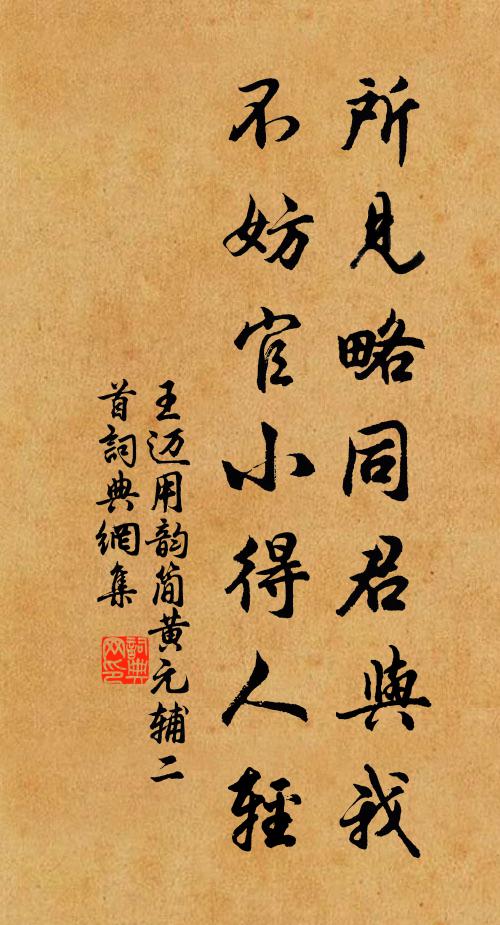 所見略同君與我
不妨官小得人輕
王迈用韵简黄元辅二
首詞典網集
詞典
网印